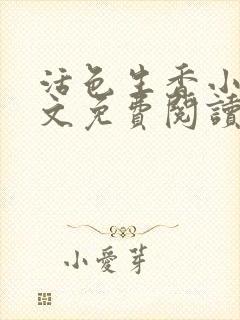 活色生香小
文免費閱讀
小愛芽